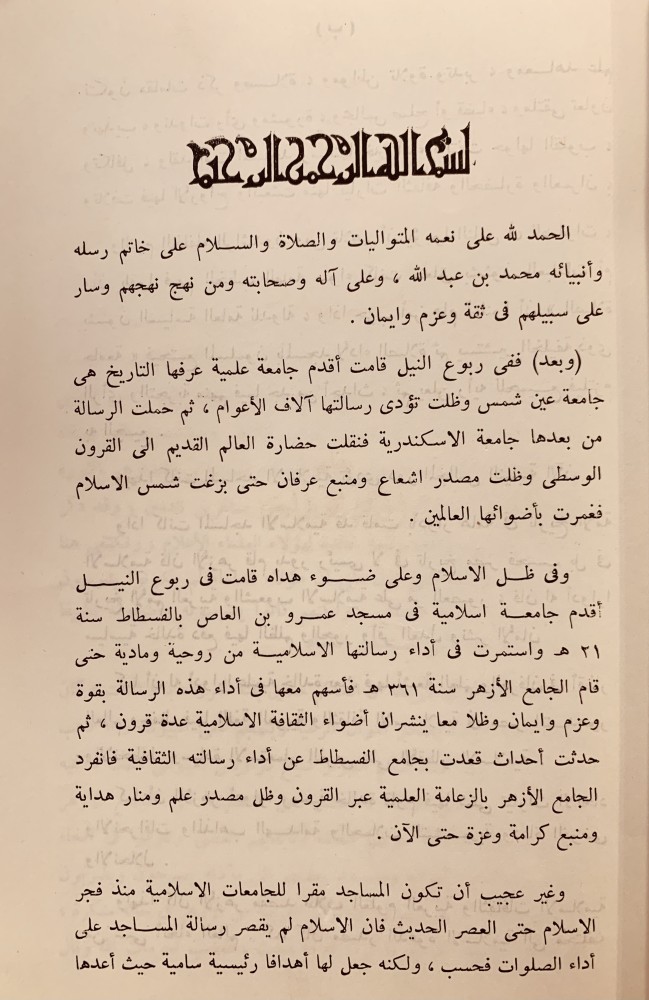 بسم الله الرحمن الرحيم
الحمد لله على نعمه المتواليات والصلاة والسلام على خاتم رسله
وأنبيائه محمد بن عبد الله ، وعلى آله وصحابته ومن نهج نهجهم وسار
على سبيلهم فى ثقة وعزم وايمان .
(وبعد) ففى ربوع النيل قامت أقدم جامعة علمية عرفها التاريخ هى
جامعة عين شمس وظلت تؤدى رسالتها آلاف الأعوام ، ثم حملت الرسالة
من بعدها جامعة الاسكندرية فنقلت حضارة العالم القديم الى القرون
الوسطى وظلت مصدر اشعاع ومنبع عرفان حتى بزغت شمس الاسلام
فغمرت بأضوائها العالمين .
وفى ظل الاسلام وعلى ضوء هداه قامت فى ربوع النيل
أقدم جامعة اسلامية فى مسجد عمرو بن العاص بالفسطاط سنة
٢١ هـ واستمرت فى أداء رسالتها الاسلامية من روحية ومادية حتى
قام الجامع الأزهر سنة ٣٦١ هـ فأسهم معها فى أداء هذه الرسالة بقوة
وعزم وايمان وظلا معا ينشران أضواء الثقافة الاسلامية عدة قرون ، ثم
حدثت أحداث قعدت بجامع الفسطاط عن أداء رسالته الثقافية فانفرد
الجامع الأزهر بالزعامة العلمية عبر القرون وظل مصدر علم ومنار هداية
ومنبع كرامة وعزة حتى الآن .
وغير عجيب أن تكون المساجد مقرا للجامعات الاسلامية منذ فجر
الاسلام حتى العصر الحديث فان الاسلام لم يقصر رسالة المساجد على
أداء الصلوات فحسب ، ولكنه جعل لها أهدافا رئيسية سامية حيث أعدها